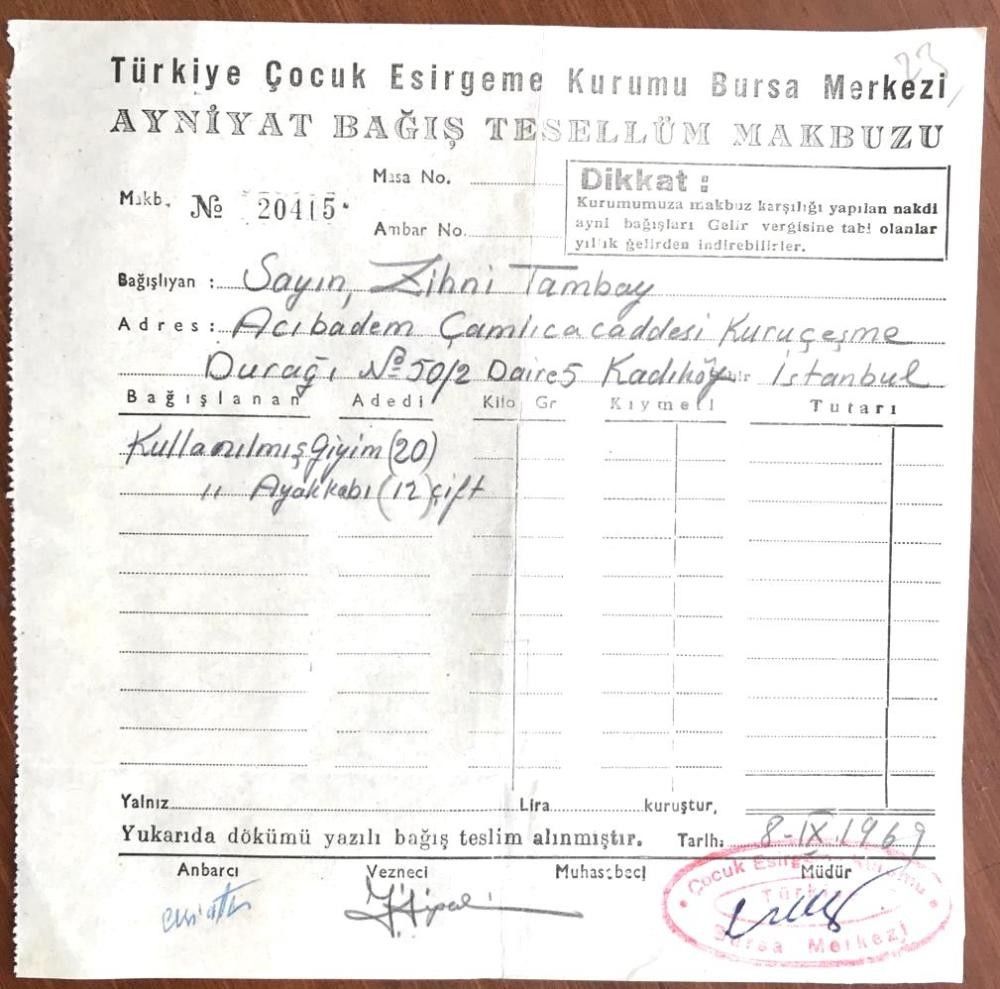 23
Türkiye Çocuk Esirgeme Kurumu Bursa Merkezi
AYNİYAT BAĞIŞ TESELLÜM MAKBUZU
Masa No.
Makb. № 20415
Ambar No.
Dikkat :
Kurumumuza makbuz karşılığı yapılan nakdi
ayni bağışları Gelir vergisine tabi olanlar
yıllık gelirden indirebilirler.
Bağışlıyan : Sayın, Zihni Tambay
Adres : Acıbadem Çamlıca caddesi Kuruçeşme
Durağı № 50/2 Daire 5 Kadıköy İstanbul
Bağışlanan Adedi Kilo Gr Kıymeti Tutarı
Kullanılmış Giyim (20)
" Ayakkabı (12) çift
Yalnız Lira kuruştur,
Yukarıda dökümü yazılı bağış teslim alınmıştır. Tarih: 8-IX.1969
Anbarcı Vezneci Muhasebeci Müdür
Çocuk Esirgeme Kurumu
Türkiye
Bursa Merkezi